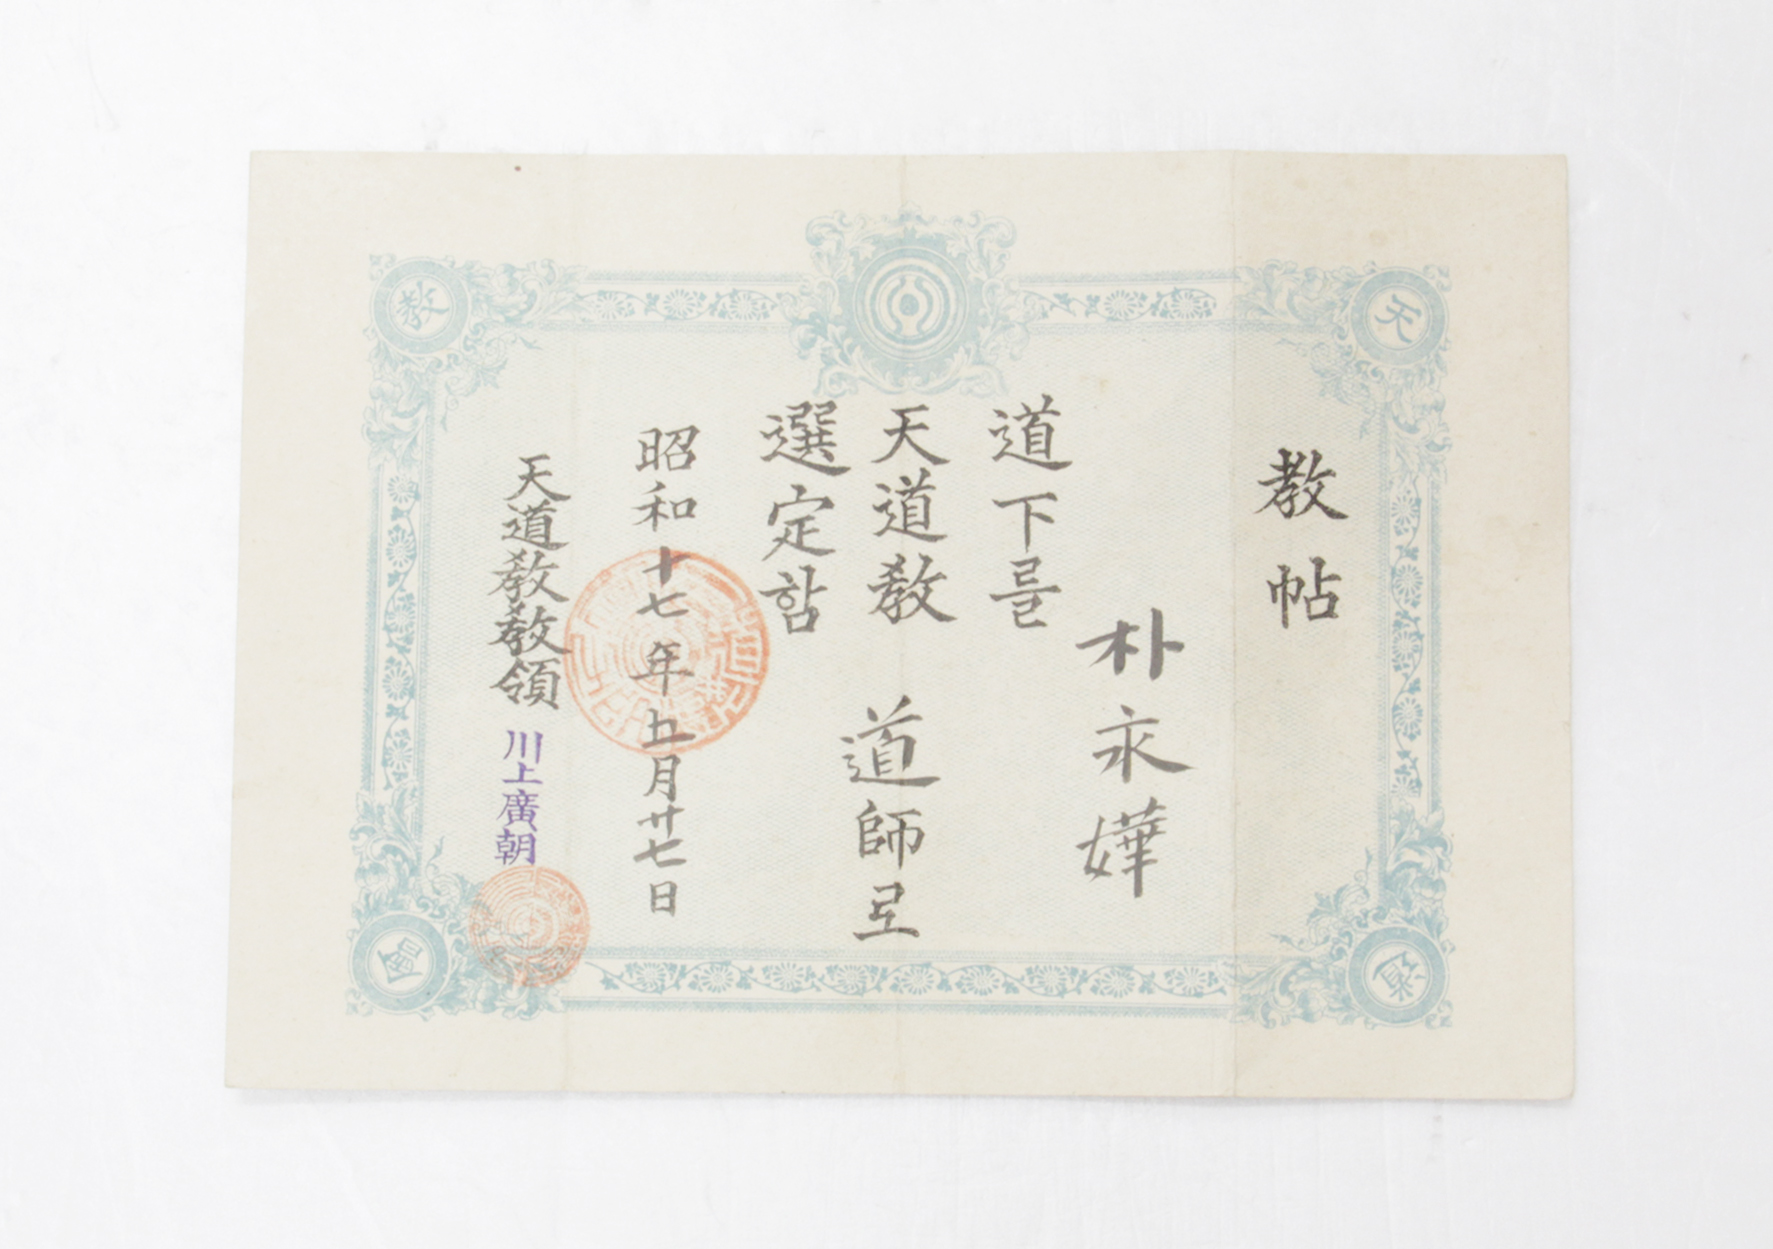 敎帖
朴永嬅
道下를
天道敎 道師로
選定함
昭和十七年五月廿七日
天道敎敎領 川上廣朝
天
敎